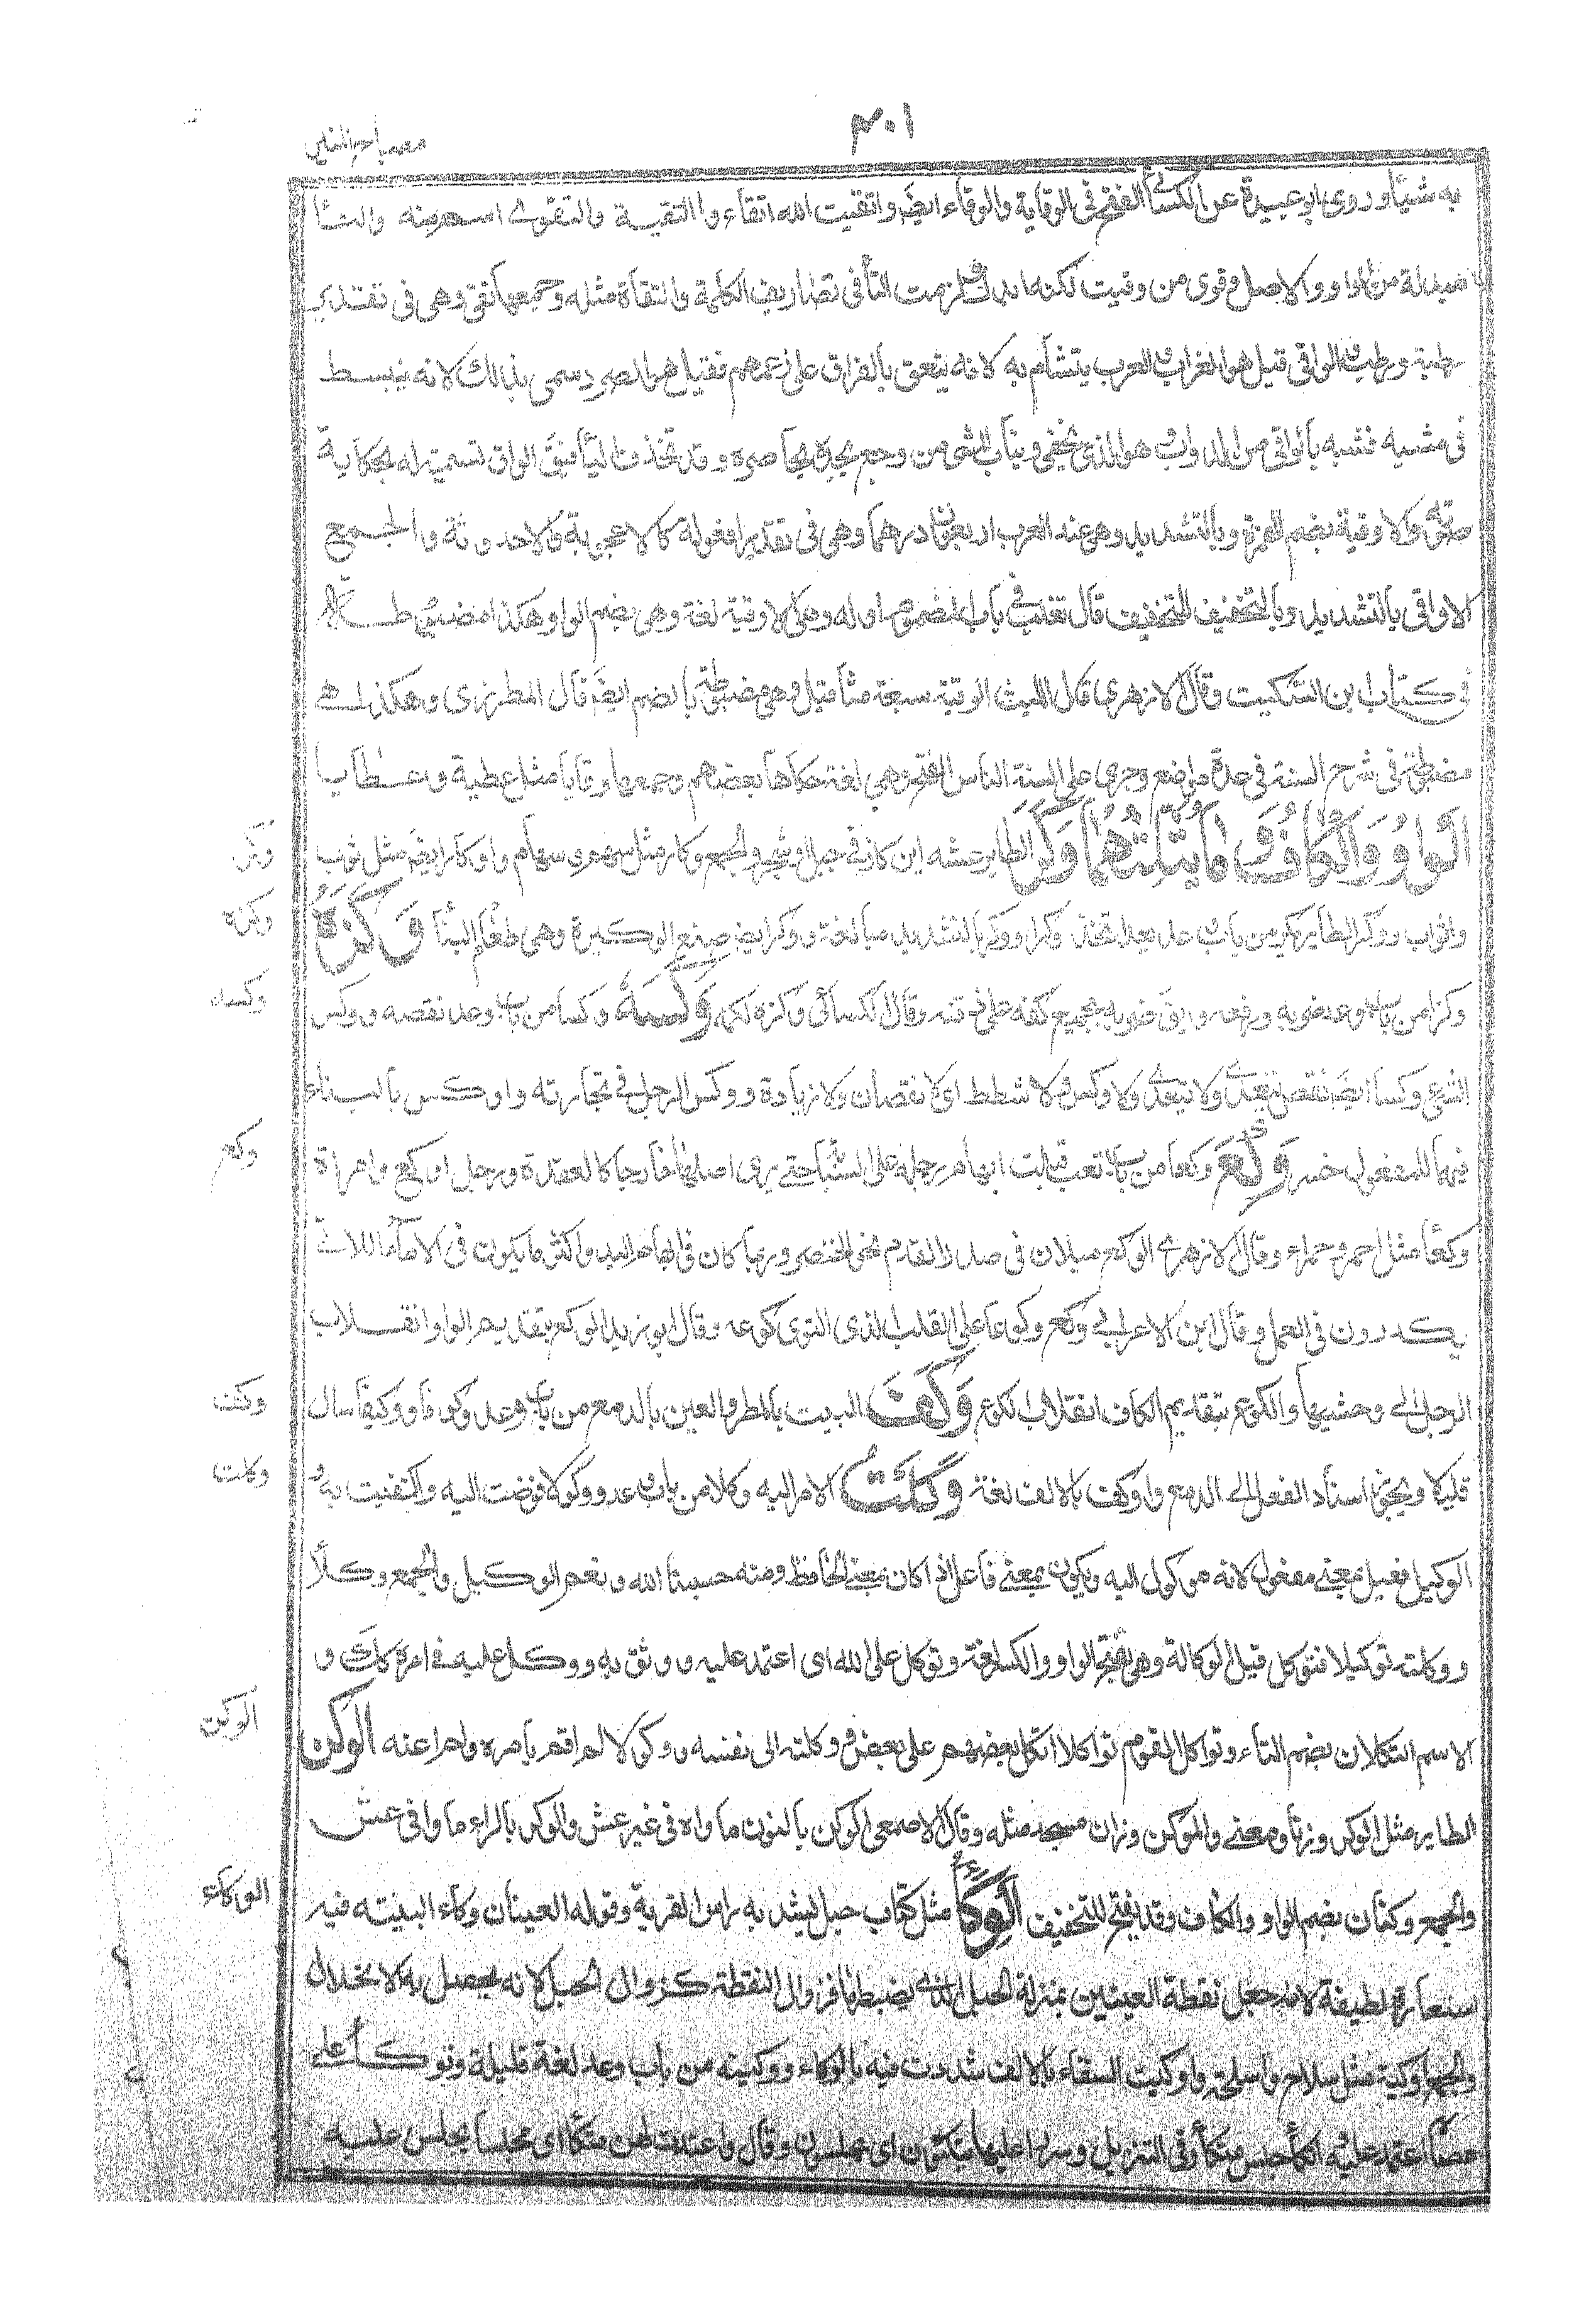 ٣٠١
مصباح المنير
به شيئا وروى ابو عبيدة عن الكسائى الفتح فى الوقاية والوقاء ايضً واتقيت الله اتقاء والتقية والتقوى اسم منه والتا
مبدلة من الواو والاصل وقوى من وقيت لكنه ابدل ولزمت التأ فى تصاريف الكلمة والتقاة مثله وجمعها تقى وهى فى تقدير
رطبة ورطب الواقى قيل هو الغراب العرب يتشأم به لانه ينعق بالفراق على زعمهم فقيل هو الصرد سمى بذالك لانه ينبسط
فى مشيه فشبه بالواقى من الدواب هو الذى يحفى ويناب المشى من وجع يجده بحافره وقد تحذف اليأ فيقَ الواق تسمية له بحكاية
صوته والاوقية بضم الهمزة وبالتشديد وهى عند العرب اربعون درهما وهى فى تقدير افعولة كالاعجوبة والاحدوثة والجمع
الاواقى بالتشديد وبالتخفيف للتخفيف قال ثعلب فى باب المضموم اوله وهى الاوقية لغة وهى بضم الواو وهكذا مضبوطة
فى كتاب ابن السكيت وقال الازهرى قال الليث الوقية سبعة مثاقيل وهى مضبوطة بالضم ايضَ قال المطرزى وهكذا هى
مضبوطة فى شرح السنة فى عدة مواضع وجرى على السنة الناس الفتح وهى لغة حكاها بعضهم وجمعها وقايا مثل عطية وعطايا
اَلْوَاوُ وَالْكَافُ وَمَا يُثَلِّثُهُمَا وَكْرُ الطاير عشه اين كان فى جبل او شجر والجمع وكار مثل سهم وسهام واوكار ايضَ مثل ثوب
واثواب ووكر الطاير يكر من باب وعد اتخذ وكرا ووكر بالتشديد مبالغة ووكر ايضَ صنع الوكيرة وهى طعام البنا وَكَزَهُ
وكزا من باب وعد ضربه ودفعه ويقَ ضربه بجميع كفه على ذقنه وقال الكسائى وكزه لكمه وَكَسَهُ وكسا من باب وعد نقصه ووكس
الشئ وكسا ايضَ نقص يتعدى ولا يتعدى ولا وكس ولا شطط اى لا نقصان ولا زيادة ووكس الرجل فى تجارته واوكس بالبناء
فيهما للمفعول خسر وَكَعَ وكعا من باب تعب اقبلت ابهام رجله على السبابة حتى يرى اصلها خارجا كالعقدة ورجل اوكع وامراة
وكعأ مثل احمر وحمراء وقال الازهرى الوكع ميلان فى صدر القدم نحو الخنصر وربما كان فى ابهام اليد واكثر ما يكون فى الاماء اللاتى
يكدرون فى العمل وقال ابن الاعرابى وكع وكوعا على القلب الذى التوى كوعه وقال ابو زيد الوكع بتقديم الواو انقلاب
الرجل الى وحشيها والكوع بتقديم الكاف انقلاب الكوع وَكَفَ البيت بالمطر والعين بالدمع من باب وعد وكوفا ووكيفا سال
قليلا ويجوز اسناد الفعل الى الدمع واوكف بالالف لغة وَكَلْتُ الامر اليه وكلا من باب وعد ووكولا فوضت اليه واكتفيت به و
الوكيل فعيل بمعنى مفعول لانه موكول اليه ويكون بمعنى فاعل اذا كان بمعنى الحافظ ومنه حسبنا الله ونعم الوكيل والجمع وكلأ
ووكلته توكيلا فتوكل قبل الوكالة وهى بفتح الواو والكسر لغة وتوكل على الله اى اعتمد عليه ووثق به ووكل عليه فى امره كذلك و
الاسم التكلان بضم التاء وتواكل القوم تواكلا اتكل بعضهم على بعض ووكلته الى نفسه ووكولا لم اقم بامره ولم اعنه الوَكن
الطاير مثل الوكر وزنأ ومعنى والموكن وزان مسجد مثله وقال الاصمعى الوكن بالنون ماواه فى غير عش والوكر بالراء ماوا فى عش
والجمع وكنات بضم الواو والكاف وقد يفتح للتخفيف اَلْوِكَاءُ مثل كتاب حبل يشد به راس القربة وقوله العينان وكاء السته فيه
استعارة لطيفة لانه جعل يقظة العينين بمنزلة الحبل لانه يضبطها فزوال اليقظة كزوال الحبل لانه يحصل به الانحلال
والجمع اوكية مثل سلاح واسلحة واوكيت السقاء بالالف شددت فيه بالوكاء ووكيته من باب وعد لغة قليلة وتوكأ على
عصاه اعتمد عليه اتكأ جلس متكأ وفى التنزيل وسررا عليها يتكئون اى يجلسون وقال واعتدت لهن متكأ اى مجلسا يجلس عليه
وكر
وكزه
وكسه
وكع
وكف
وكلت
الوكن
الوكاء